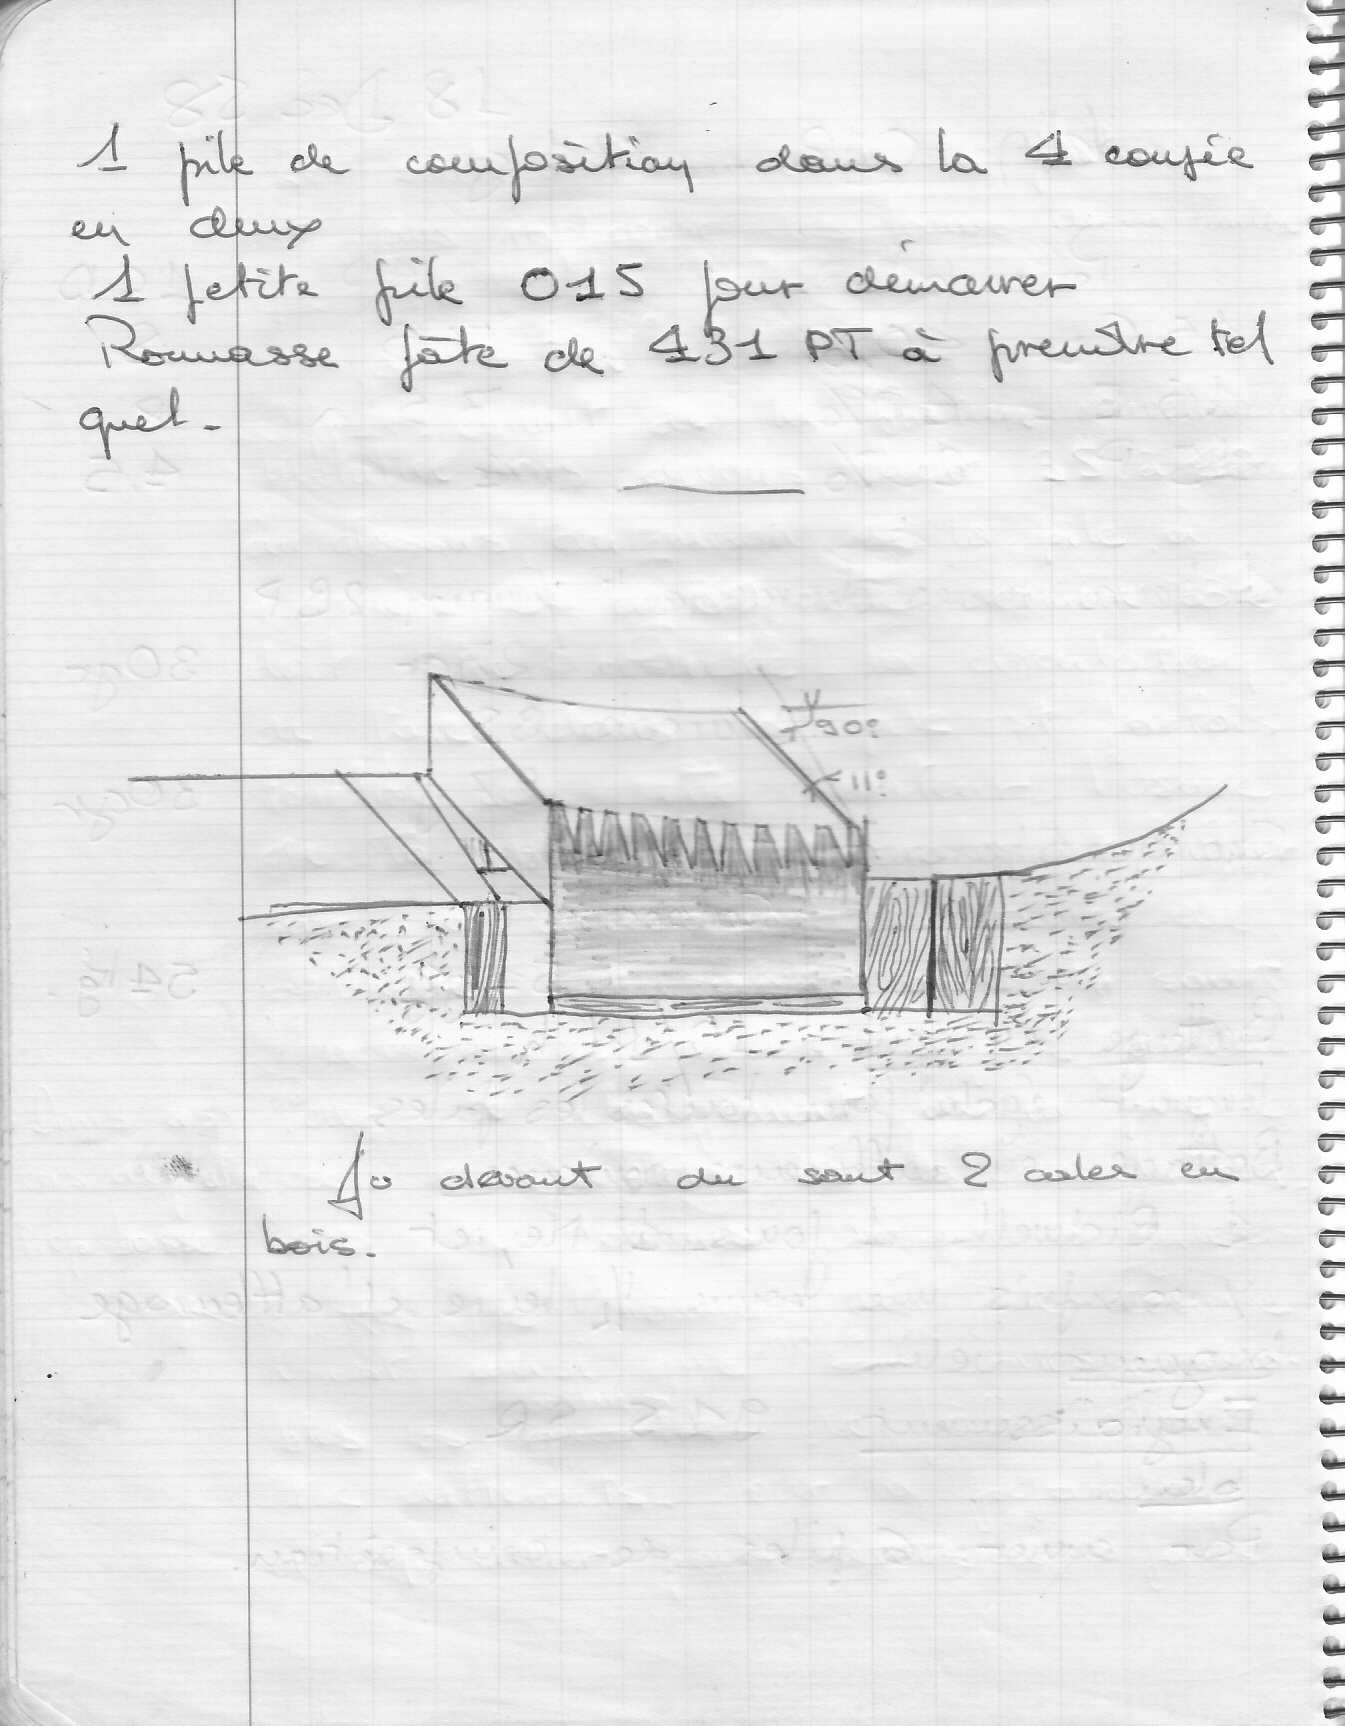 1 pile de composition dans la 4 coupée
en deux
1 petite pile 015 pour démarrer
Ramasse pâte de 431 PT à prendre tel
quel.
90°
11°
Au devant du saut 2 cales en
bois.